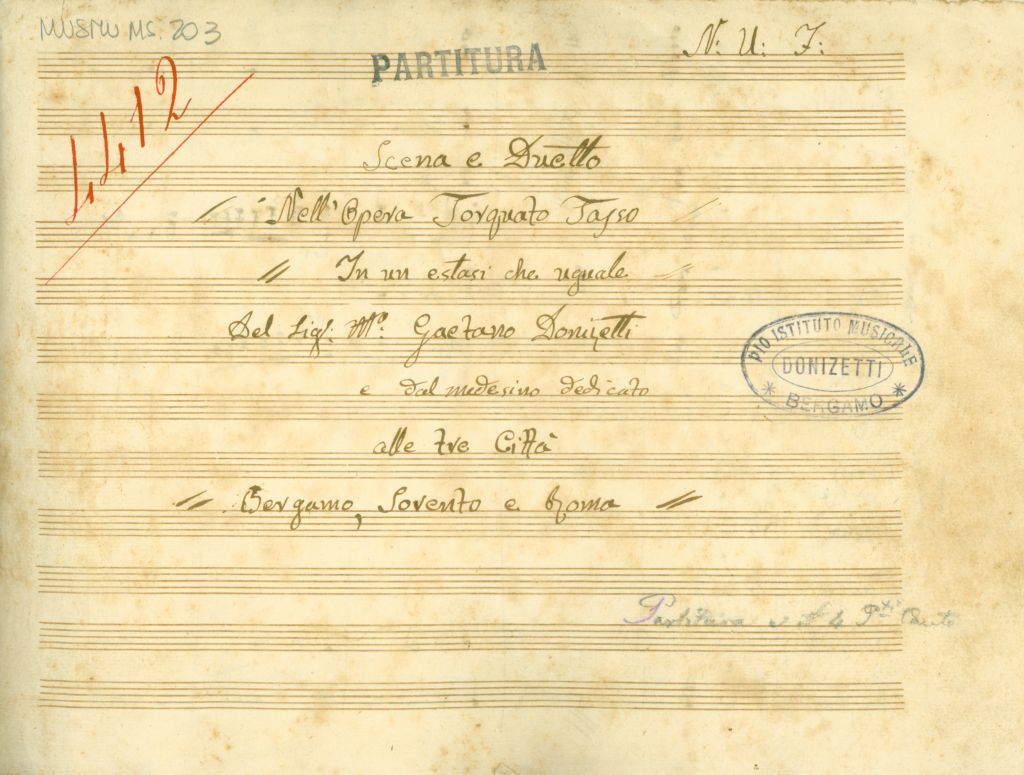 MUSMU MS. 203
PARTITURA
N: U: F:
4412
Scena e Duetto
Nell'Opera Torquato Tasso
In un estasi che uguale
Del Sigr. Mo. Gaetano Donizetti
e dal medesimo dedicato
alle tre Città
Bergamo, Sorento e Roma
PIO ISTITUTO MUSICALE
DONIZETTI
* BERGAMO *
Partitura 4 Pti Canto